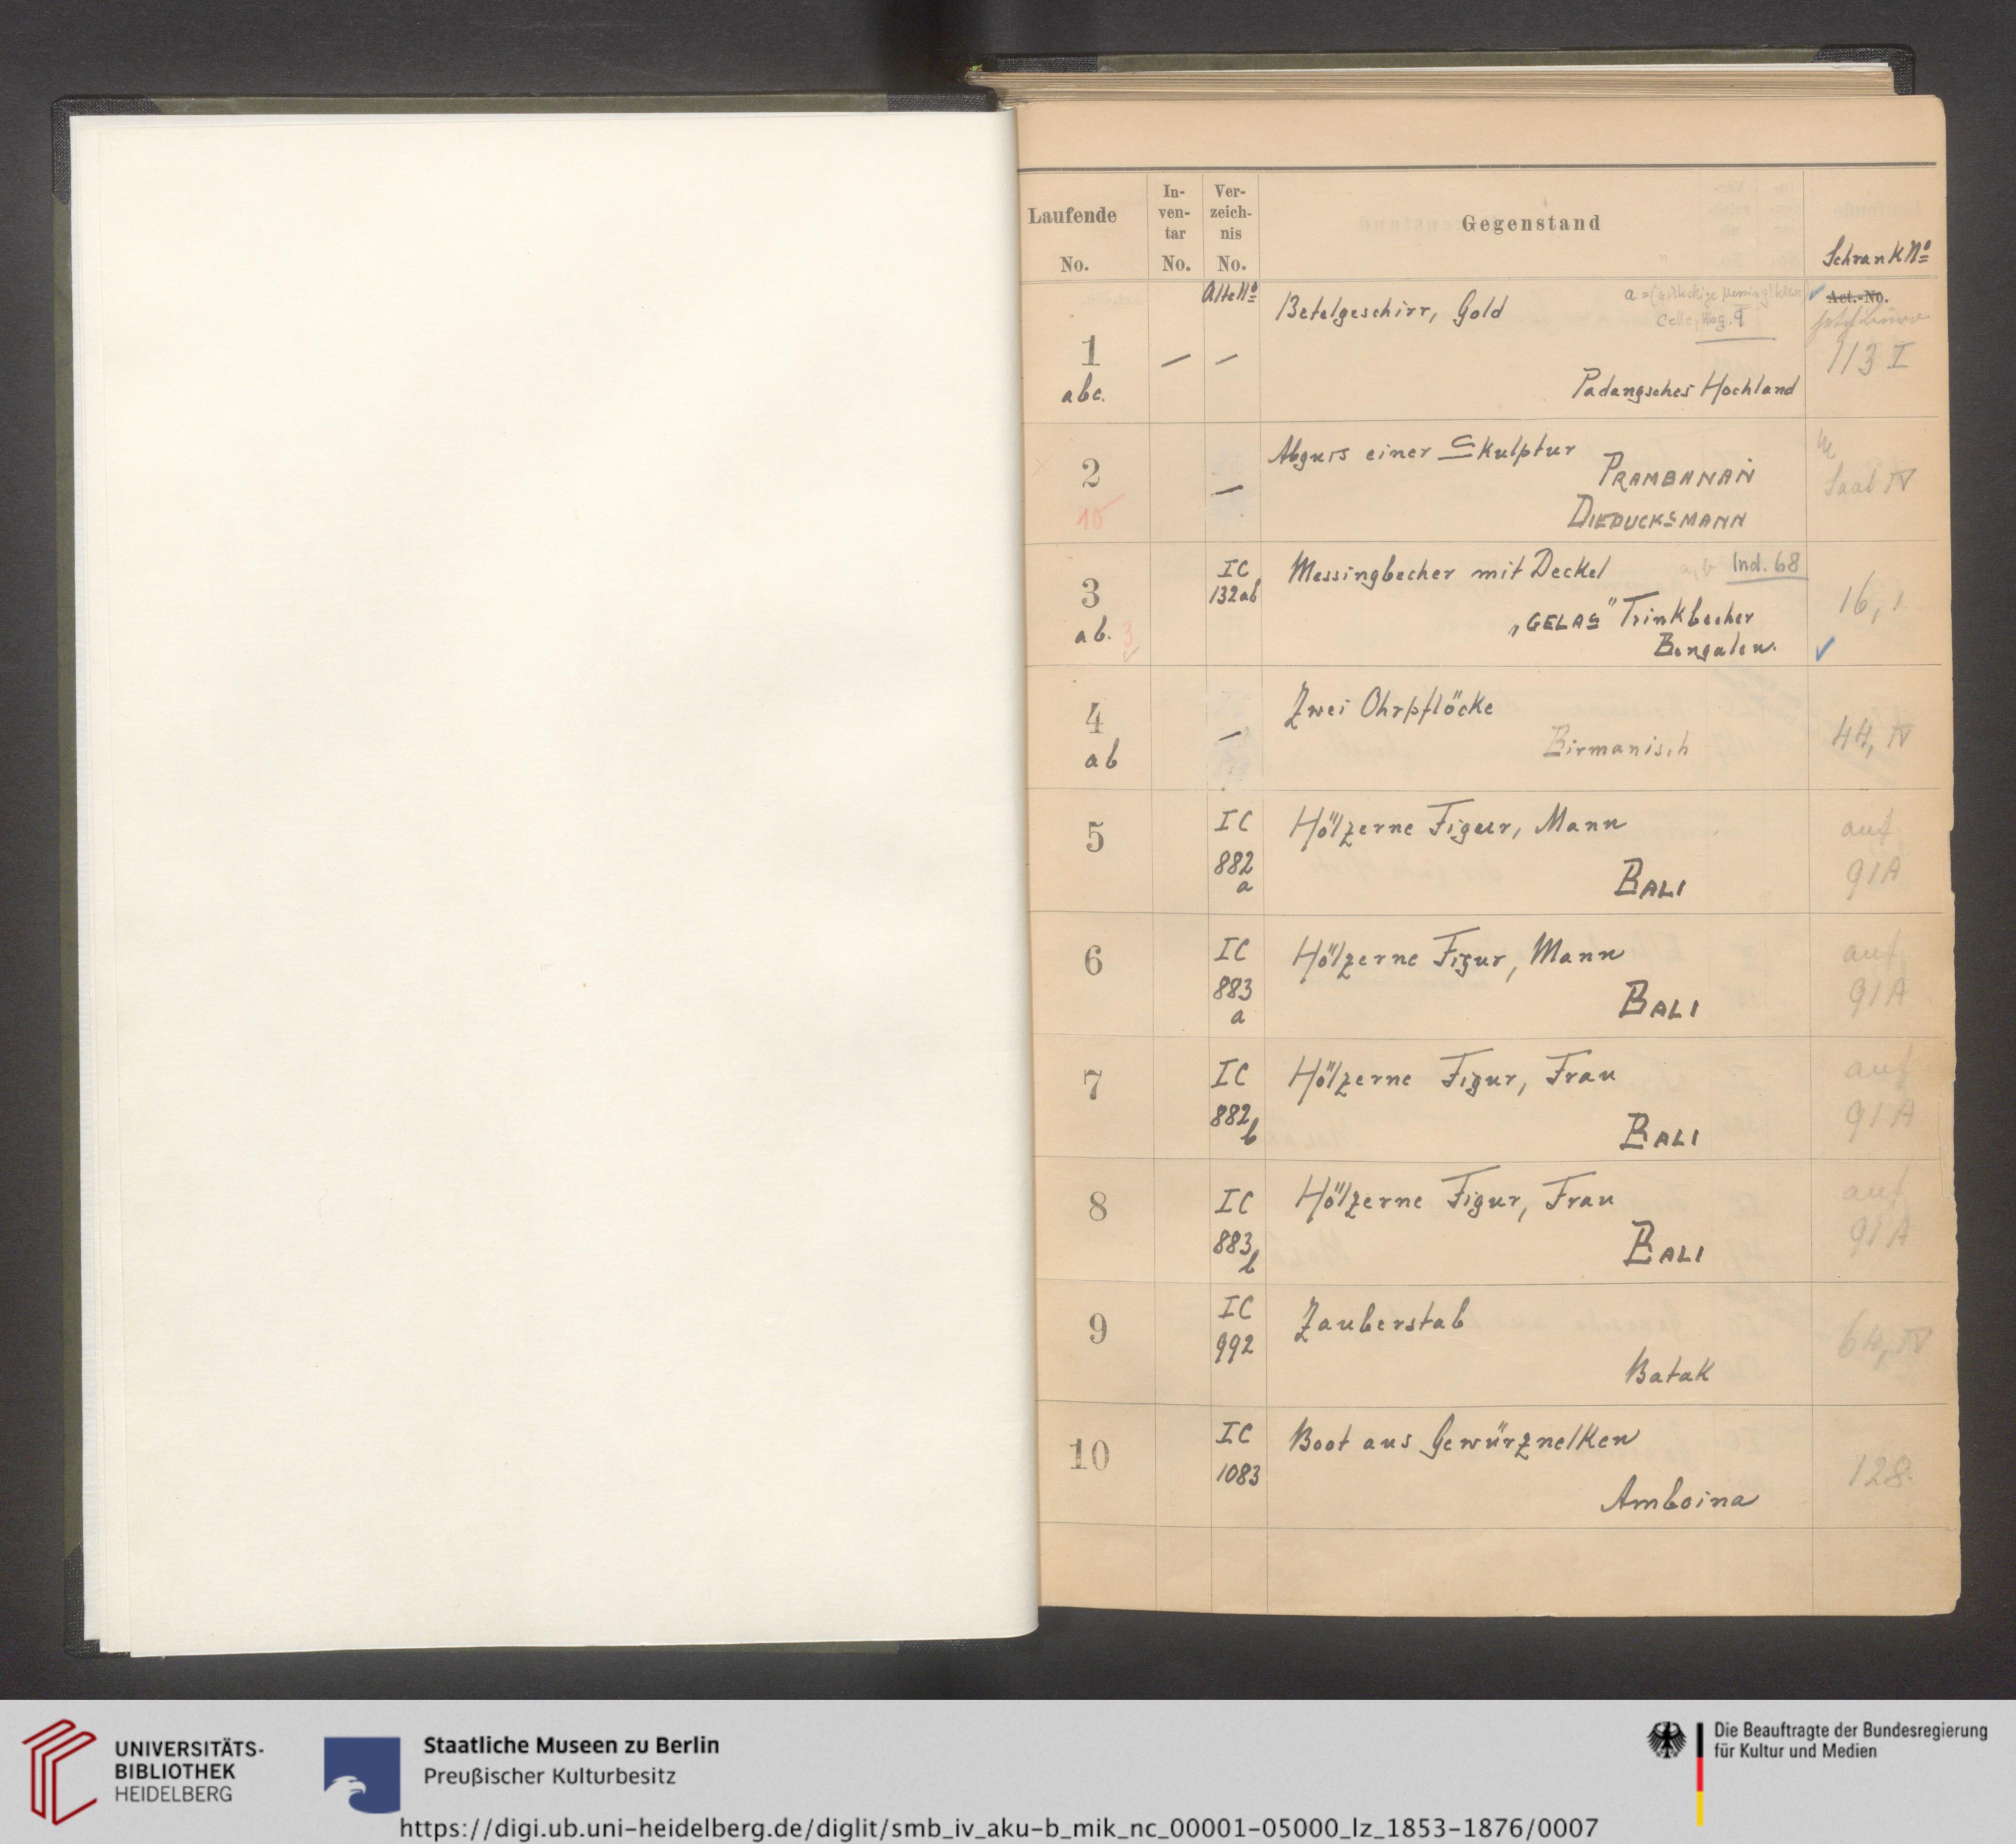 Laufende No.
In-ven-tar No.
Ver-zeich-nis No.
Gegenstand
Schrank No
Alte No
Act.-No.
1
abc.
— —
Betelgeschirr, Gold
Celle, Mag. 9
Padangsches Hochland
113 I
2
10
—
Abguss einer Skulptur
PRAMBANAN
DIEDUCKSMANN
Saal IV
3
ab. 3
IC
132ab
Messingbecher mit Deckel
a, b Ind. 68
„GELAS" Trinkbecher
Bengalen.
16, 1
4
ab
—
Zwei Ohrpflöcke
Birmanisch
44, IV
5
IC
882
a
Hölzerne Figur, Mann
BALI
auf
91A
6
IC
883
a
Hölzerne Figur, Mann
BALI
auf
91A
7
IC
882
b
Hölzerne Figur, Frau
BALI
auf
91A
8
IC
883
b
Hölzerne Figur, Frau
BALI
auf
91A
9
IC
992
Zauberstab
Batak
64, IV
10
IC
1083
Boot aus Gewürznelken
Amboina
128.
UNIVERSITÄTS-
BIBLIOTHEK
HEIDELBERG
Staatliche Museen zu Berlin
Preußischer Kulturbesitz
Die Beauftragte der Bundesregierung
für Kultur und Medien
https://digi.ub.uni-heidelberg.de/diglit/smb_iv_aku-b_mik_nc_00001-05000_lz_1853-1876/0007